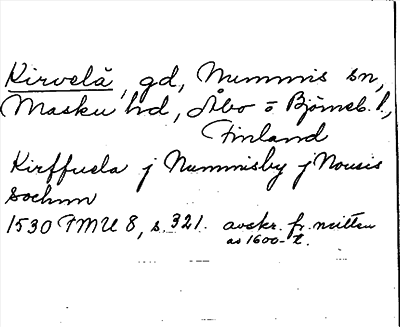 Kirvelä, gd, Nummis sn,
Masku hd, Åbo o Björneb. l.,
Finland
Kirffuela j Nummisby j Nousis
sochnn
1530 FMU 8, s. 321. avskr. fr. mitten
av 1600-t.